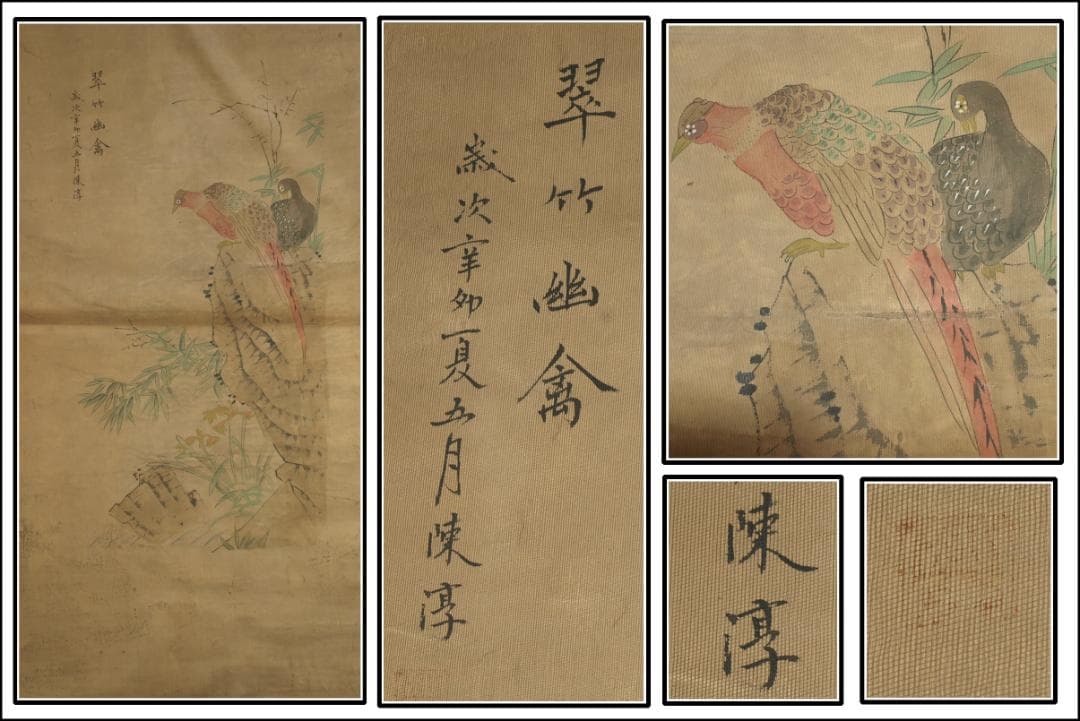 翠竹幽禽
歲次辛卯夏五月陳淳
翠竹幽禽
歲次辛卯夏五月陳淳
陳淳